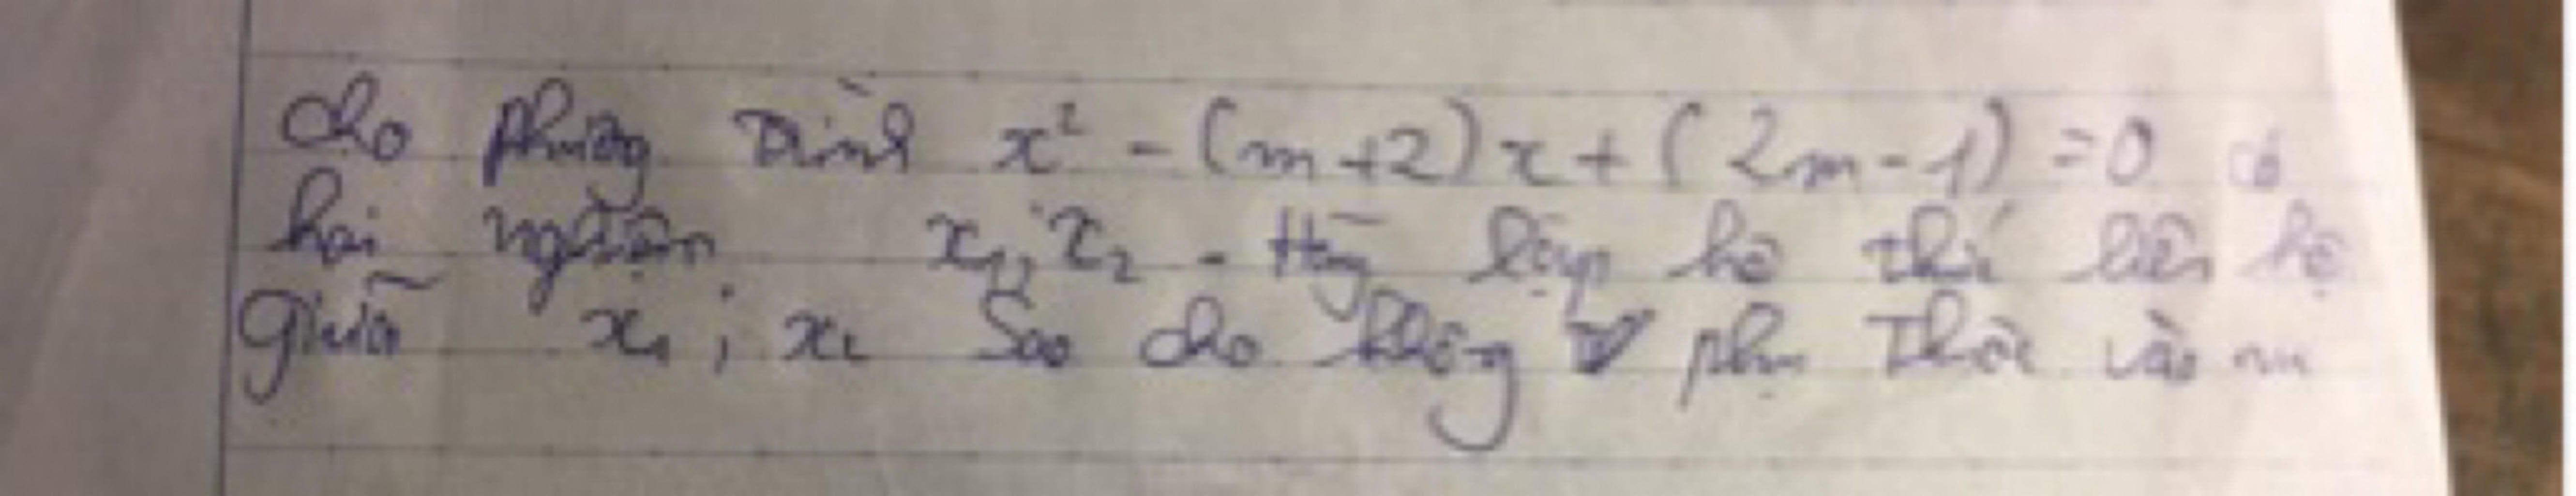 Cho phương trình x² - (m+2)x + (2m-1) = 0 có
hai nghiệm x₁; x₂ . Hãy lập hệ thức liên hệ
giữa x₁ ; x₂ sao cho không phụ thuộc vào m